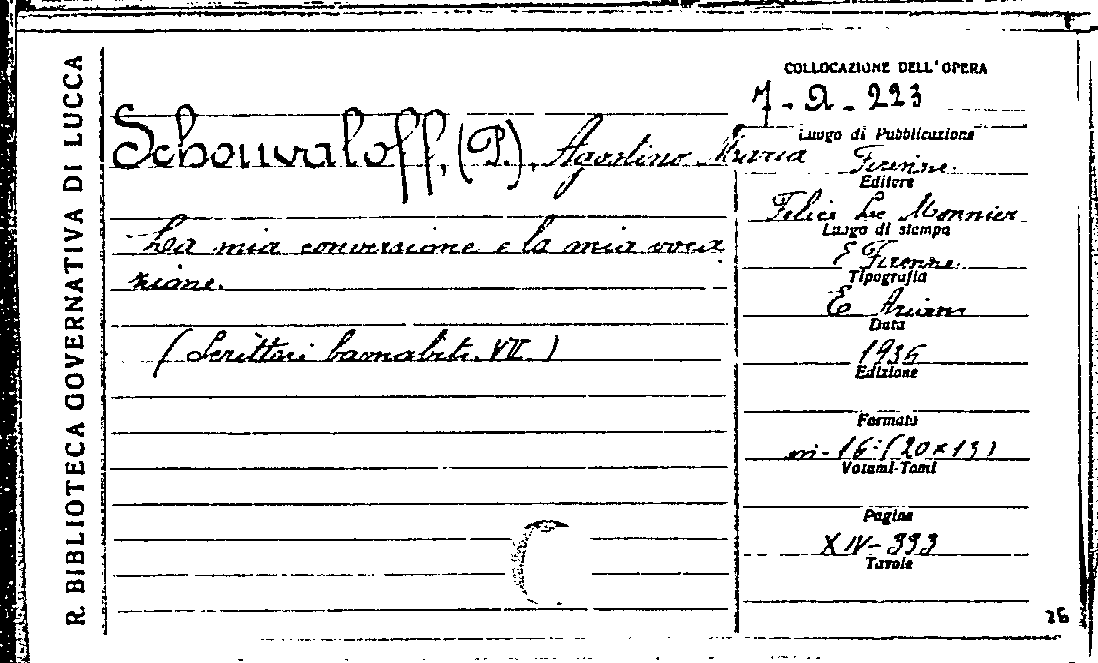 R. BIBLIOTECA GOVERNATIVA DI LUCCA
COLLOCAZIONE DELL'OPERA
7 - D - 223
Schouvaloff, (P.), Agostino Maria
La mia conversione e la mia voca
zione.
(Scrittori barnabiti. VII.)
Luogo di Pubblicazione
Firenze.
Editore
Felice Le Monnier
Luogo di stampa
Firenze.
Tipografia
E Ariani
Data
Edizione
Formato
in-16° (20x13)
Volumi-Tomi
Pagine
XIV-333
Tavole